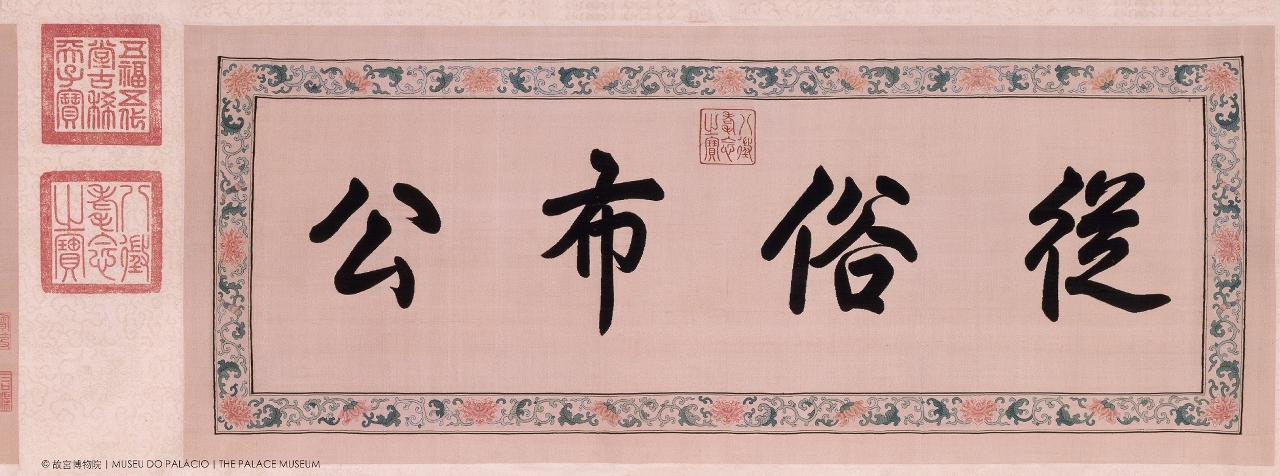 從俗布公
八徵耄念之寶
五福五代堂古稀天子寶
八徵耄念之寶
© 故宮博物院 | MUSEU DO PALÁCIO | THE PALACE MUSEUM